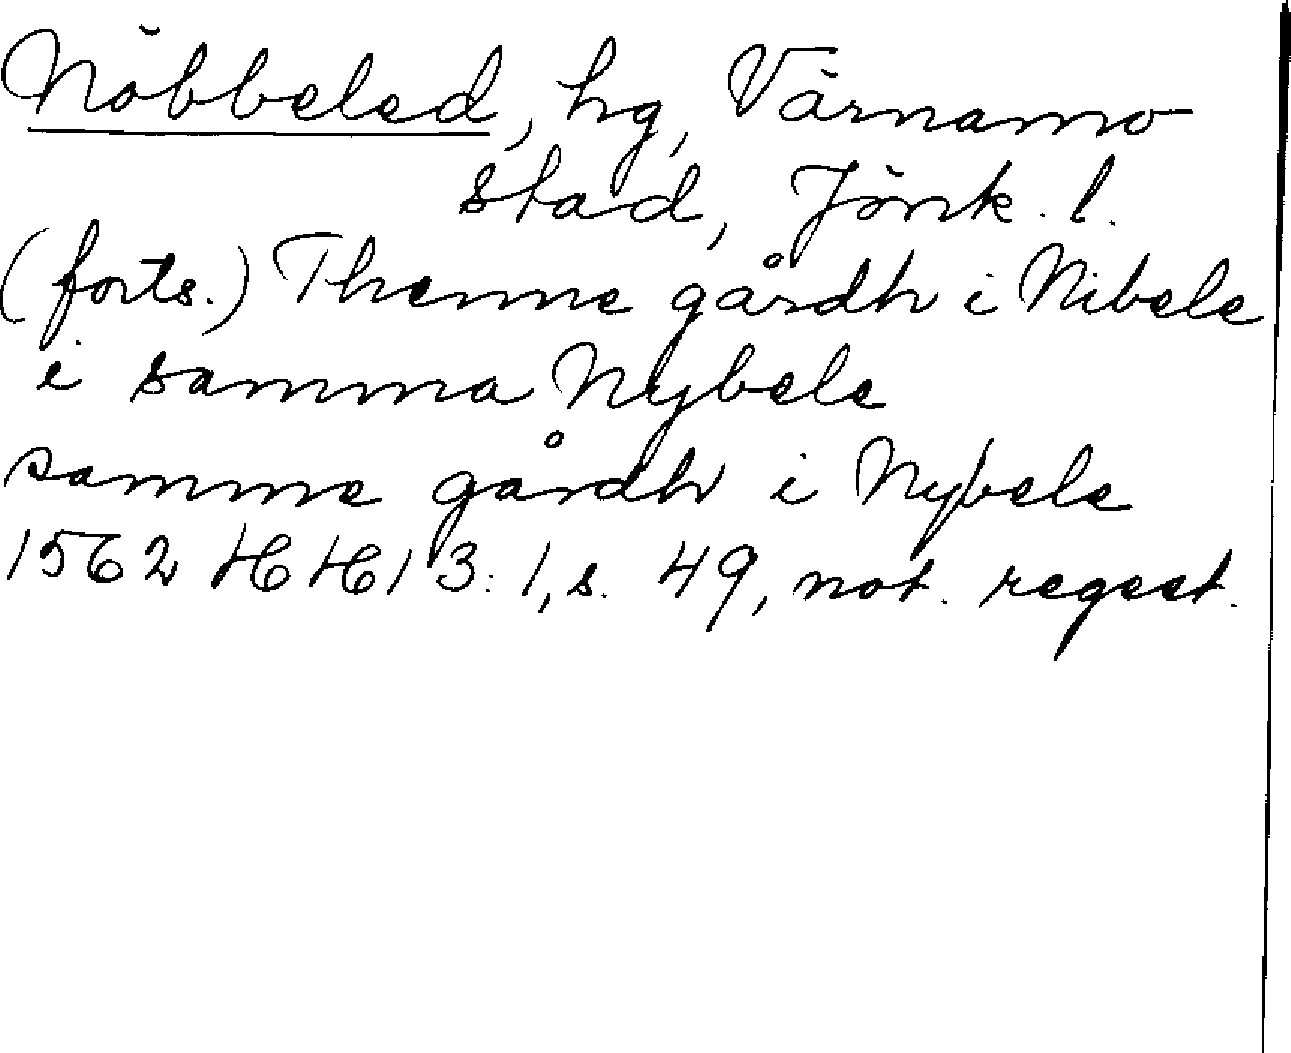 Nöbbeled, hg, Värnamo
stad, Jönk. l.
(forts.) Thenne gårdh i Nibele
i samma Nybele
samme gårdh i Nybele
1562 HH 13:1, s. 49, not. regest.